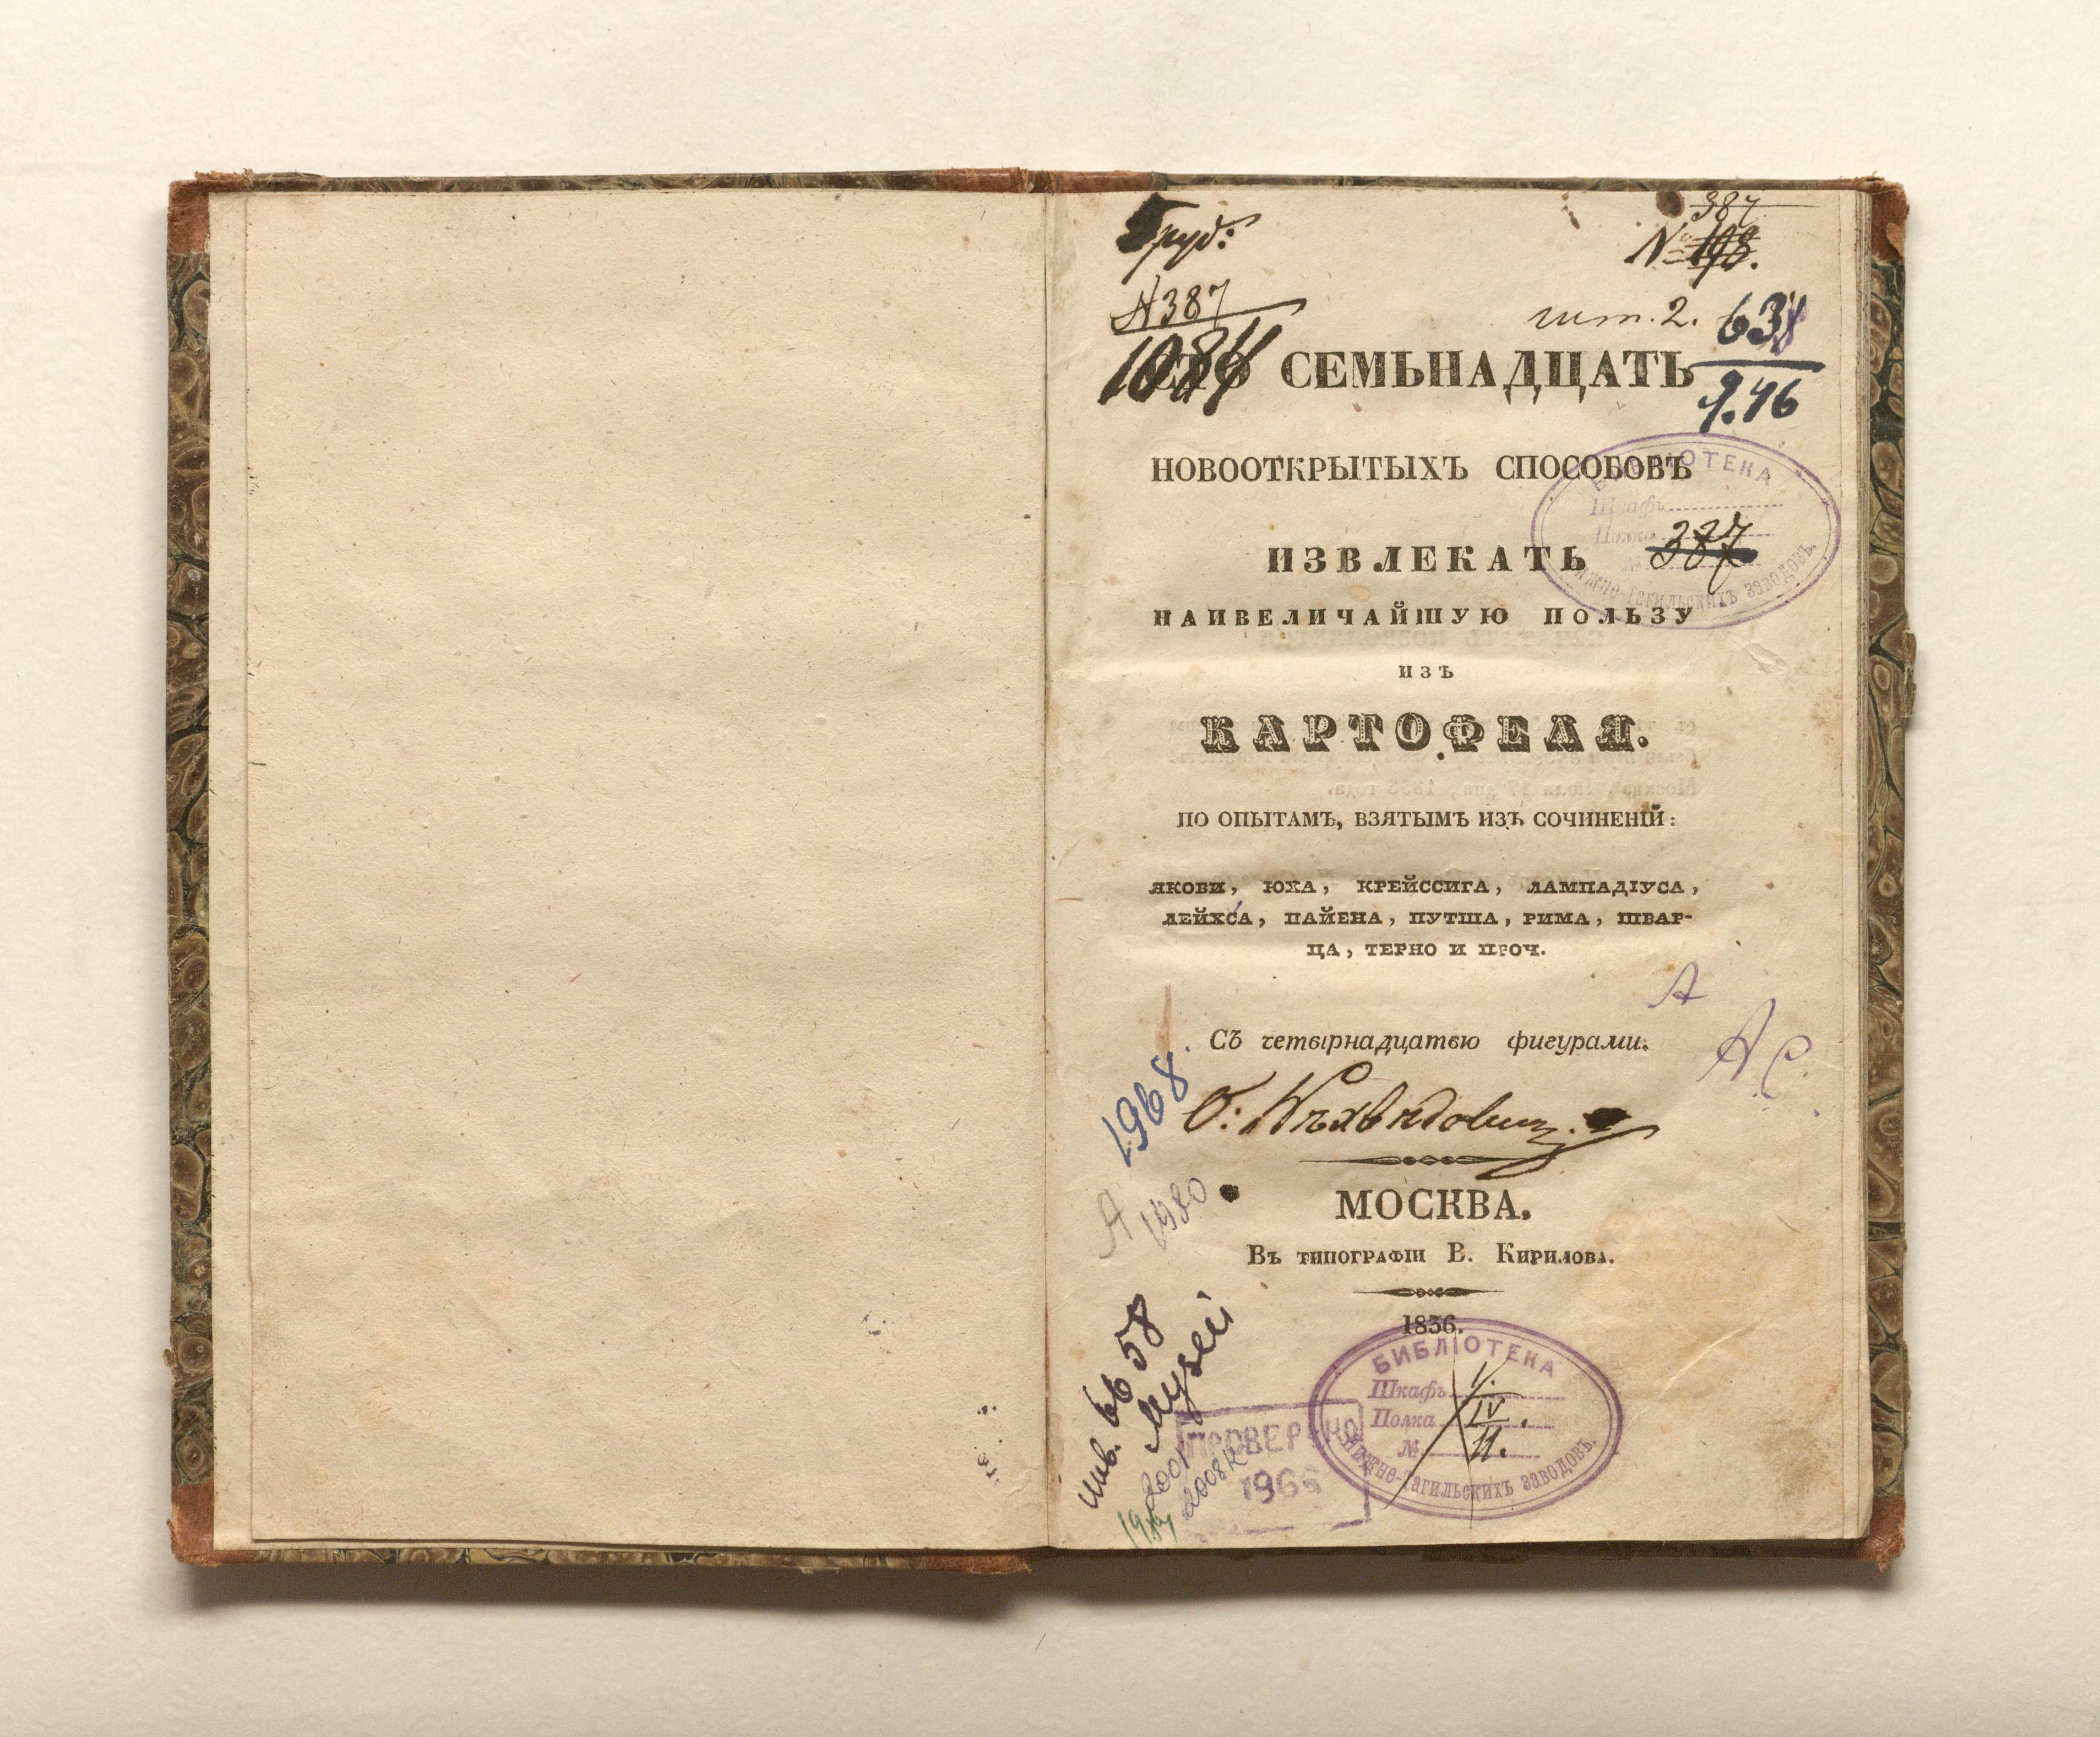 387
№ 198.
N 387
шт. 2.
638
9.46
1084
СТО СЕМЬНАДЦАТЬ
НОВООТКРЫТЫХЪ СПОСОБОВЪ
БИБЛІОТЕКА
Шкафъ
Полка
№
387
Нижне-Тагильскихъ заводовъ.
ИЗВЛЕКАТЬ
НАИВЕЛИЧАЙШУЮ ПОЛЬЗУ
ИЗЪ
КАРТОФЕЛЯ.
ПО ОПЫТАМЪ, ВЗЯТЫМЪ ИЗЪ СОЧИНЕНІЙ:
ЯКОБИ, ЮХА, КРЕЙССИГА, ЛАМПАДІУСА,
ЛЕЙХСА, ПАЙЕНА, ПУТША, РИМА, ШВАР-
ЦА, ТЕРНО И ПРОЧ.
А
АС
Съ четырнадцатью фигурами.
1968
А 1980
МОСКВА.
Въ типографіи В. Кирилова.
1836.
инв. 6658
Музей
ПРОВЕРЕНО
1966
2001
2008
БИБЛІОТЕКА
Шкафъ V.
Полка IV.
№ 11.
Нижне-Тагильскихъ заводовъ.